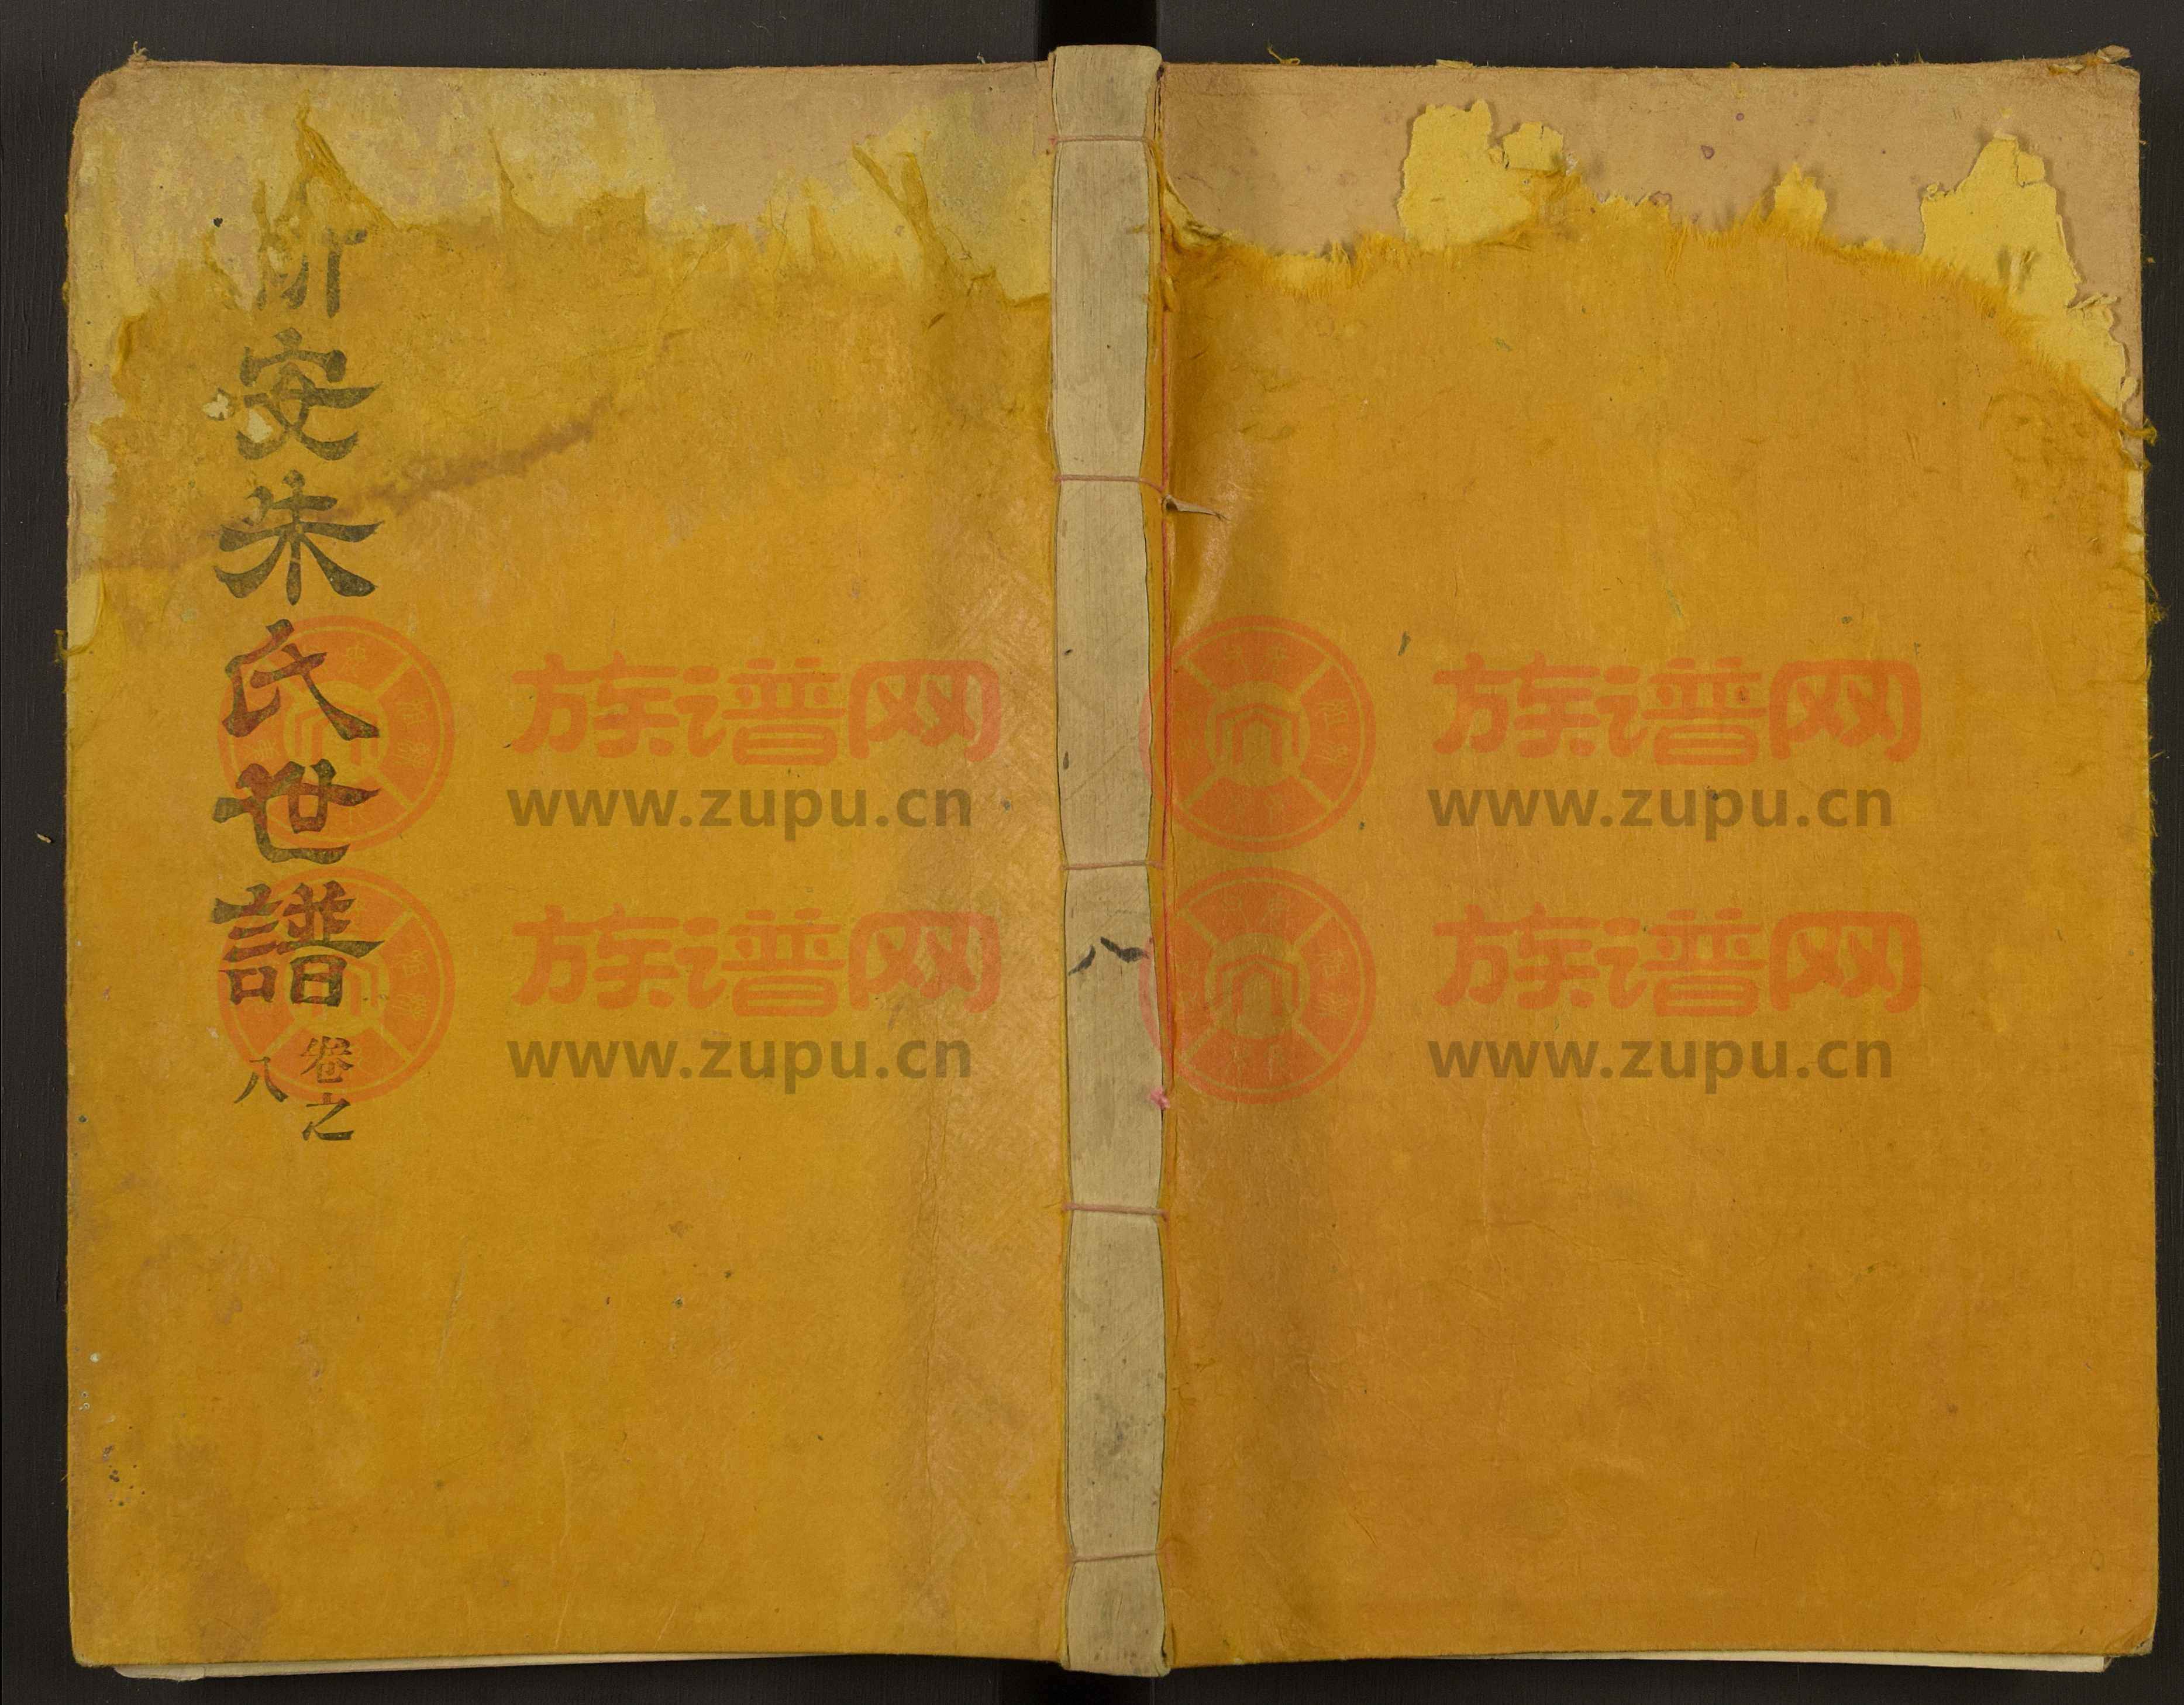 新安朱氏世譜
卷之
八
八
族谱网
www.zupu.cn
族谱网
www.zupu.cn
族谱网
www.zupu.cn
族谱网
www.zupu.cn